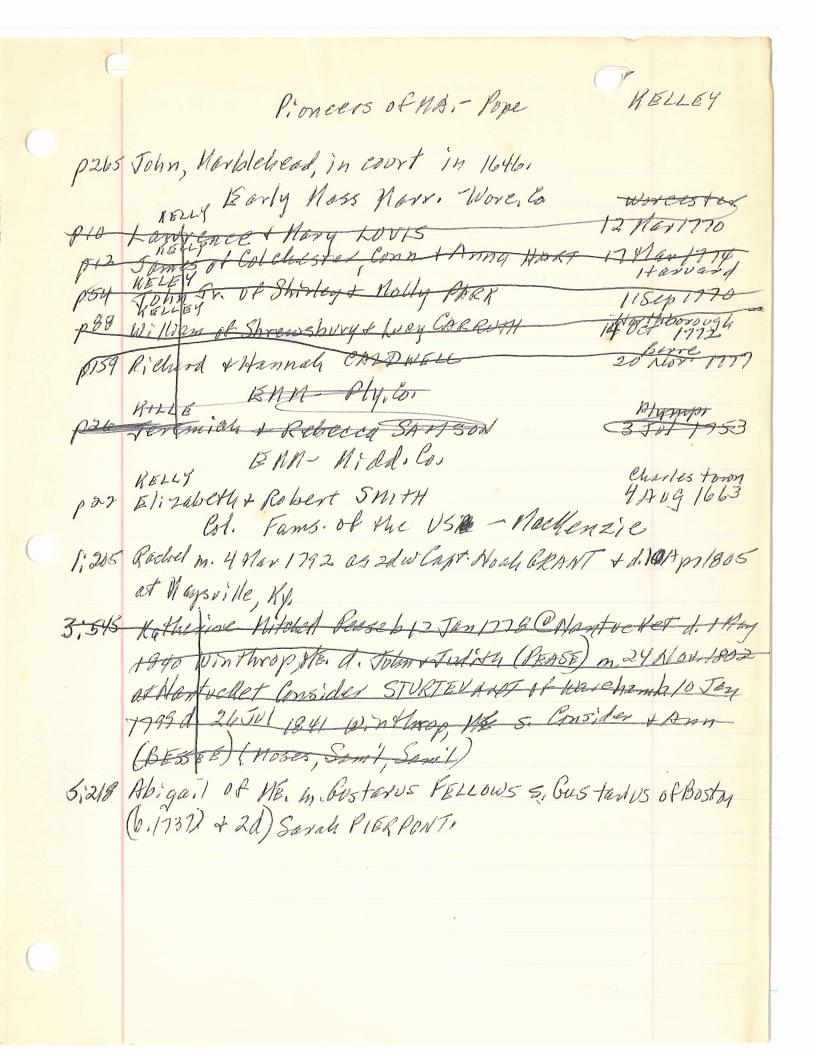 Pioneers of MA. - Pope KELLEY
p265 John, Marblehead, in court in 1646.
Early Mass Marr. - Worc. Co Worcester
KELLY
p10 Lawrence & Mary LOVIS 12 Mar 1770
KELLY
p12 James of Colchester, Conn & Anna HART 17 Mar 1774
KELLEY Harvard
p54 John Jr. of Shirley & Molly PARK 11 Sep 1770
KELLEY Northborough
p88 William of Shrewsbury & Lucy CARRUTH Oct 1772
Barre
p159 Richard & Hannah CALDWELL 20 Nov. 1777
EMM - Ply. Co.
KILLE Plympt
p26 Jeremiah & Rebecca SAMSON 3 Jul 1753
EMM - Midd. Co.
KELLY Charlestown
p22 Elizabeth & Robert SMITH 4 Aug 1663
Col. Fams. of the US - MacKenzie
1:205 Rachel m. 4 Mar 1792 as 2d w Capt. Noah GRANT & d. Apr 1805
at Maysville, Ky.
3:545 Katherine Mitchell Pease b 12 Jan 1778 @ Nantucket d. 1 May
1840 Winthrop, ME. d. John & Judith (PEASE) m. 24 Nov. 1802
at Nantucket Consider STURTEVANT of Wareham b 10 Jan
d 26 Jul 1841 Winthrop, Me s. Consider & Ann
(BESSEE) (Moses, Sam'l, Sam'l)
5:218 Abigail of ME. m. Gustavus FELLOWS s. Gustavus of Boston
(b. 1737) & 2d) Sarah PIERPONT.